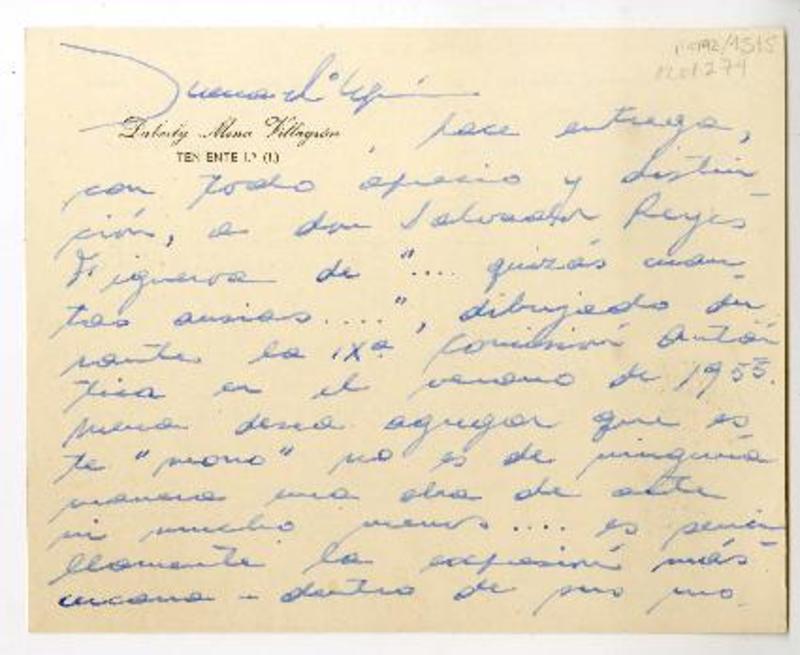 hace entrega,
Daberly Mena Villagrán
TENIENTE 1.º (I.)
con todo aprecio y distin-
ción, a don Salvador Reyes
Figueroa de ".... quizás cuan-
tas ansias....", dibujado du-
rante la IXª Comisión Antár-
tica en el verano de 1955.
Mena desea agregar que es-
te "mono" no es de ninguna
manera una obra de arte
ni mucho menos.... es senci-
llamente la expresión más
cercana - dentro de sus mo-